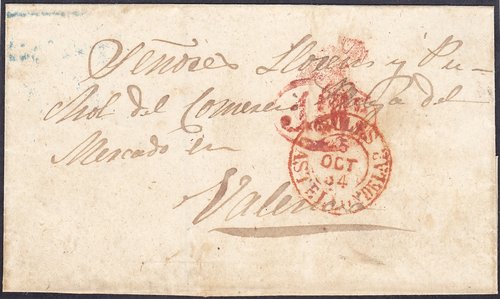 Señores Llorens y Pu-
chol del Comercio Plaza del
Mercado en
Valencia
OCT
54